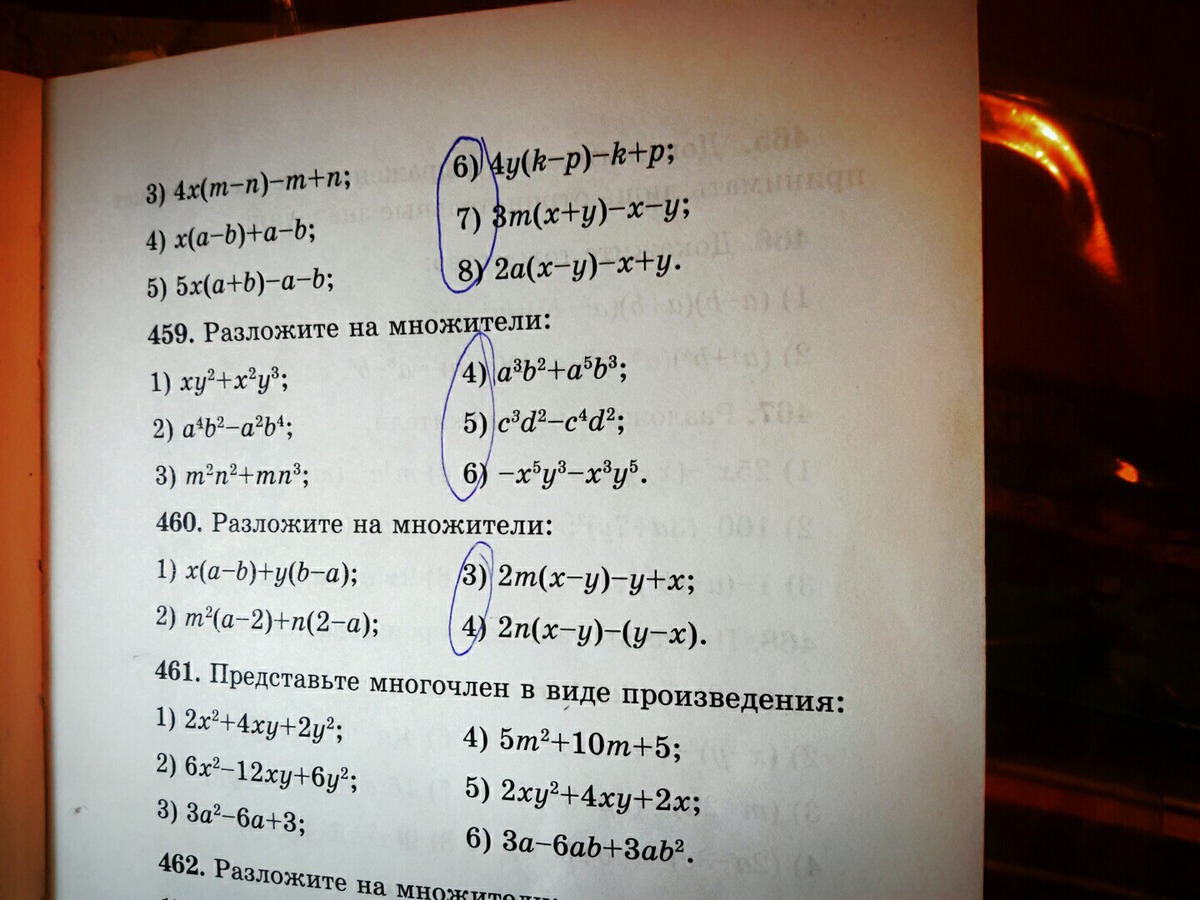 3) 4x(m−n)−m+n;
4) x(a−b)+a−b;
5) 5x(a+b)−a−b;
6) 4y(k−p)−k+p;
7) 3m(x+y)−x−y;
8) 2a(x−y)−x+y.
459. Разложите на множители:
1) xy²+x²y³;
2) a⁴b²−a²b⁴;
3) m²n²+mn³;
4) a³b²+a⁵b³;
5) c³d²−c⁴d²;
6) −x⁵y³−x³y⁵.
460. Разложите на множители:
1) x(a−b)+y(b−a);
2) m²(a−2)+n(2−a);
3) 2m(x−y)−y+x;
4) 2n(x−y)−(y−x).
461. Представьте многочлен в виде произведения:
1) 2x²+4xy+2y²;
2) 6x²−12xy+6y²;
3) 3a²−6a+3;
4) 5m²+10m+5;
5) 2xy²+4xy+2x;
6) 3a−6ab+3ab².
462. Разложите на множители: